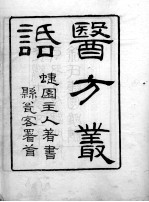 醫方叢
話
蜨園主人著書
縣瓮客署首